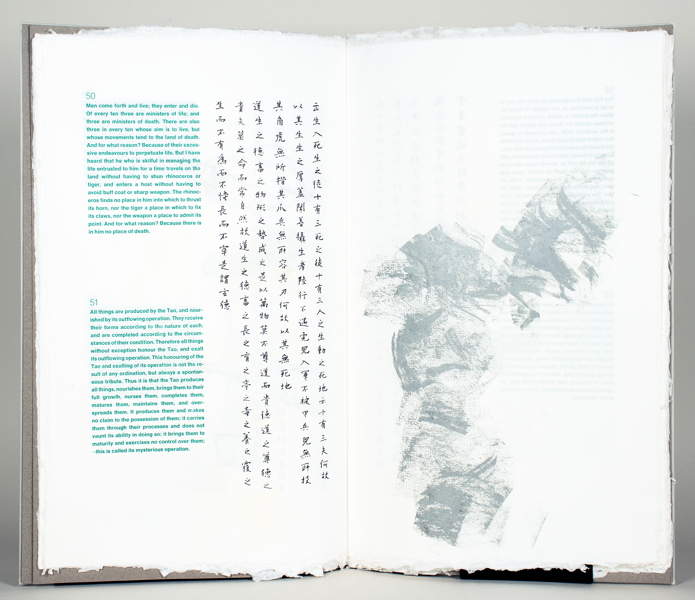 50
Men come forth and live; they enter and die.
Of every ten three are ministers of life; and
three are ministers of death. There are also
three in every ten whose aim is to live, but
whose movements tend to the land of death.
And for what reason? Because of their exces-
sive endeavours to perpetuate life. But I have
heard that he who is skilful in managing the
life entrusted to him for a time travels on the
land without having to shun rhinoceros or
tiger, and enters a host without having to
avoid buff coat or sharp weapon. The rhinoc-
eros finds no place in him into which to thrust
its horn, nor the tiger a place in which to fix
its claws, nor the weapon a place to admit its
point. And for what reason? Because there is
in him no place of death.
51
All things are produced by the Tao, and nour-
ished by its outflowing operation. They receive
their forms according to the nature of each,
and are completed according to the circum-
stances of their condition. Therefore all things
without exception honour the Tao, and exalt
its outflowing operation. This honouring of the
Tao and exalting of its operation is not the re-
sult of any ordination, but always a spontan-
eous tribute. Thus it is that the Tao produces
all things, nourishes them, brings them to their
full growth, nurses them, completes them,
matures them, maintains them, and over-
spreads them. It produces them and makes
no claim to the possession of them; it carries
them through their processes and does not
vaunt its ability in doing so; it brings them to
maturity and exercises no control over them;
–this is called its mysterious operation.
出生入死生之徒十有三死之徒十有三人之生動之死地亦十有三夫何故
以其生生之厚蓋聞善攝生者陸行不遇虎兕入軍不被甲兵兕無所投
其角虎無所措其爪兵無所容其刃何故以其無死地
道生之德畜之物形之勢成之是以萬物莫不尊道而貴德道之尊德之
貴夫莫之命而常自然故道生之德畜之長之育之亭之毒之養之覆之
生而不有為而不恃長而不宰是謂玄德